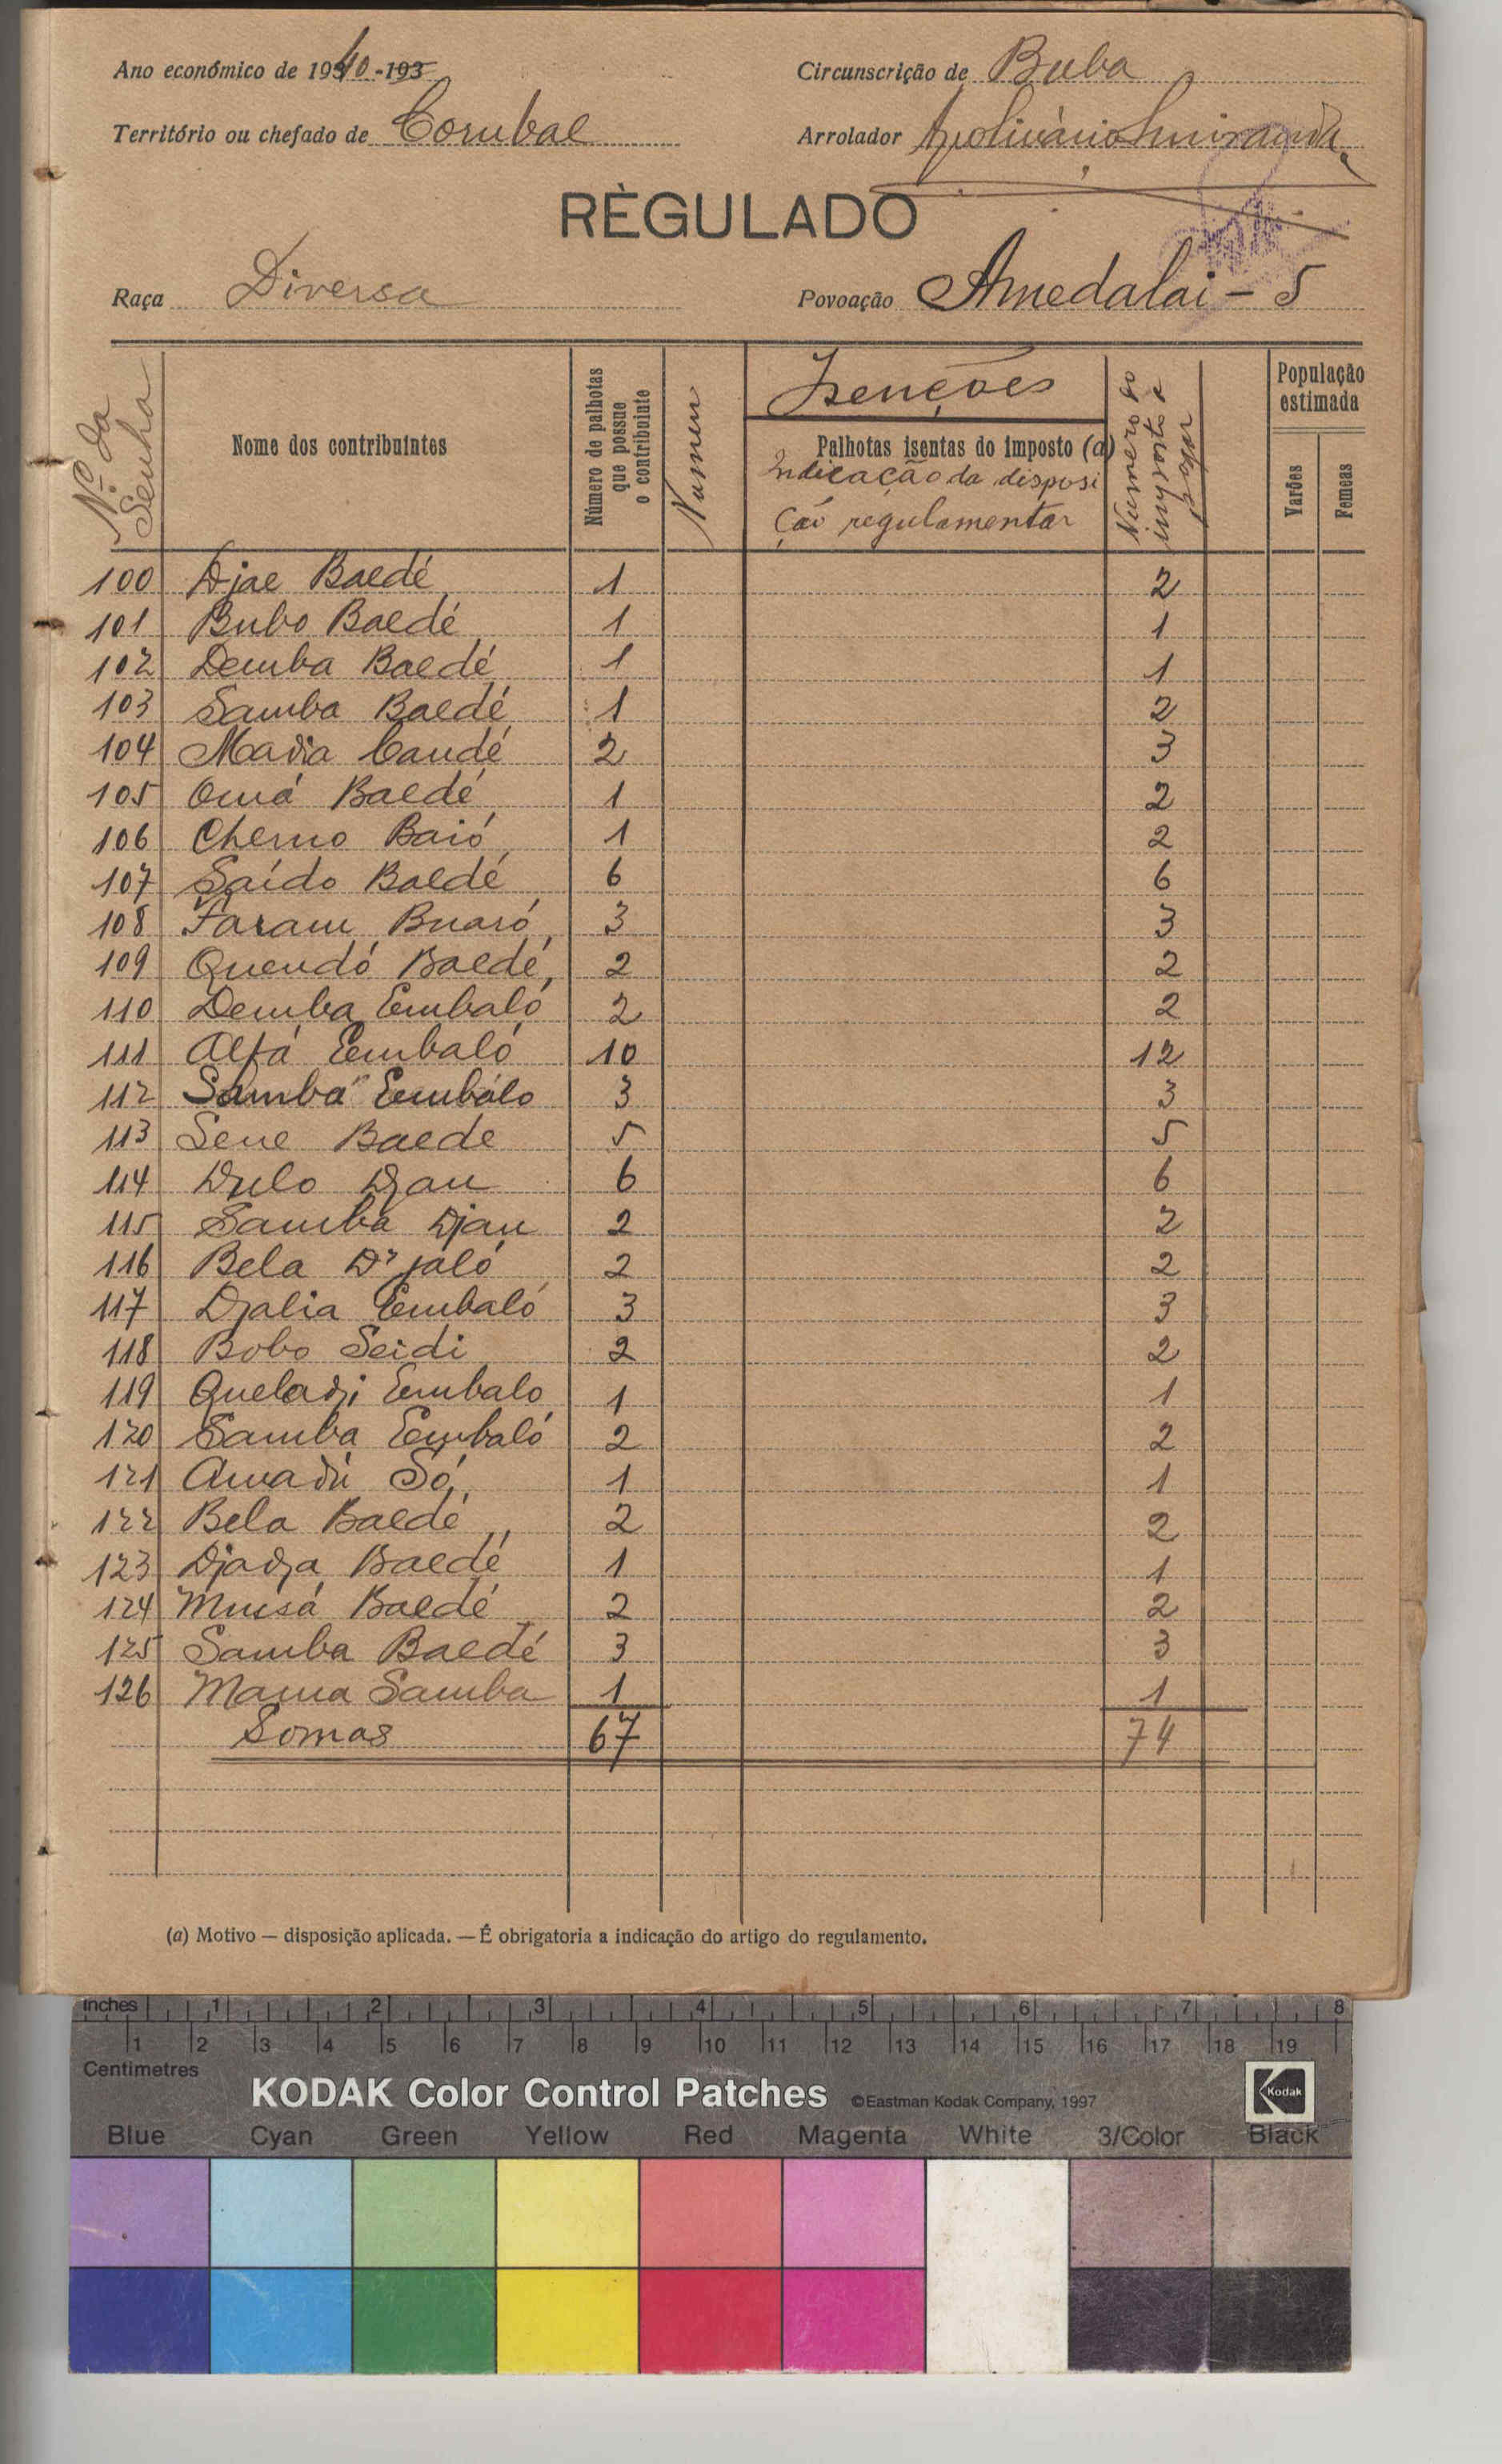 Ano económico de 1940-193
Circunscrição de Buba
Território ou chefado de Corubal
Arrolador
RÈGULADO
Raça Diversa
Povoação Amedalai - 5
Nº da Senha
Nome dos contribuintes
Número de palhotas que possue o contribuinte
Numer
Isenções
Palhotas isentas do imposto (a)
Indicação da disposi
ção regulamentar
Numero do imposto a pagar
População estimada
Varões
Femeas
100 Djae Baedé 1 2
101 Bubo Baedé 1 1
102 Demba Baedé 1 1
103 Samba Baedé 1 2
104 Madia Candé 2 3
105 Omá Baedé 1 2
106 Cherno Baió 1 2
107 Saído Baedé 6 6
108 Faram Buaró 3 3
109 Quendó Baedé 2 2
110 Demba Embaló 2 2
111 Alfá Embaló 10 12
112 Samba Embálo 3 3
113 Sene Baede 5 5
114 Dulo Djau 6 6
115 Samba Djau 2 2
116 Bela Djaló 2 2
117 Djalia Embaló 3 3
118 Bobo Seidi 2 2
119 Queladji Embalo 1 1
120 Samba Embaló 2 2
121 Amadú Só 1 1
122 Bela Baedé 2 2
123 Djadja Baedé 1 1
124 Mussá Baedé 2 2
125 Samba Baedé 3 3
126 Mama Samba 1 1
Somas 67 74
(a) Motivo — disposição aplicada. — É obrigatoria a indicação do artigo do regulamento.
inches 1 2 3 4 5 6 7 8
1 2 3 4 5 6 7 8 9 10 11 12 13 14 15 16 17 18 19
Centimetres
KODAK Color Control Patches ©Eastman Kodak Company, 1997 Kodak
Blue Cyan Green Yellow Red Magenta White 3/Color Black